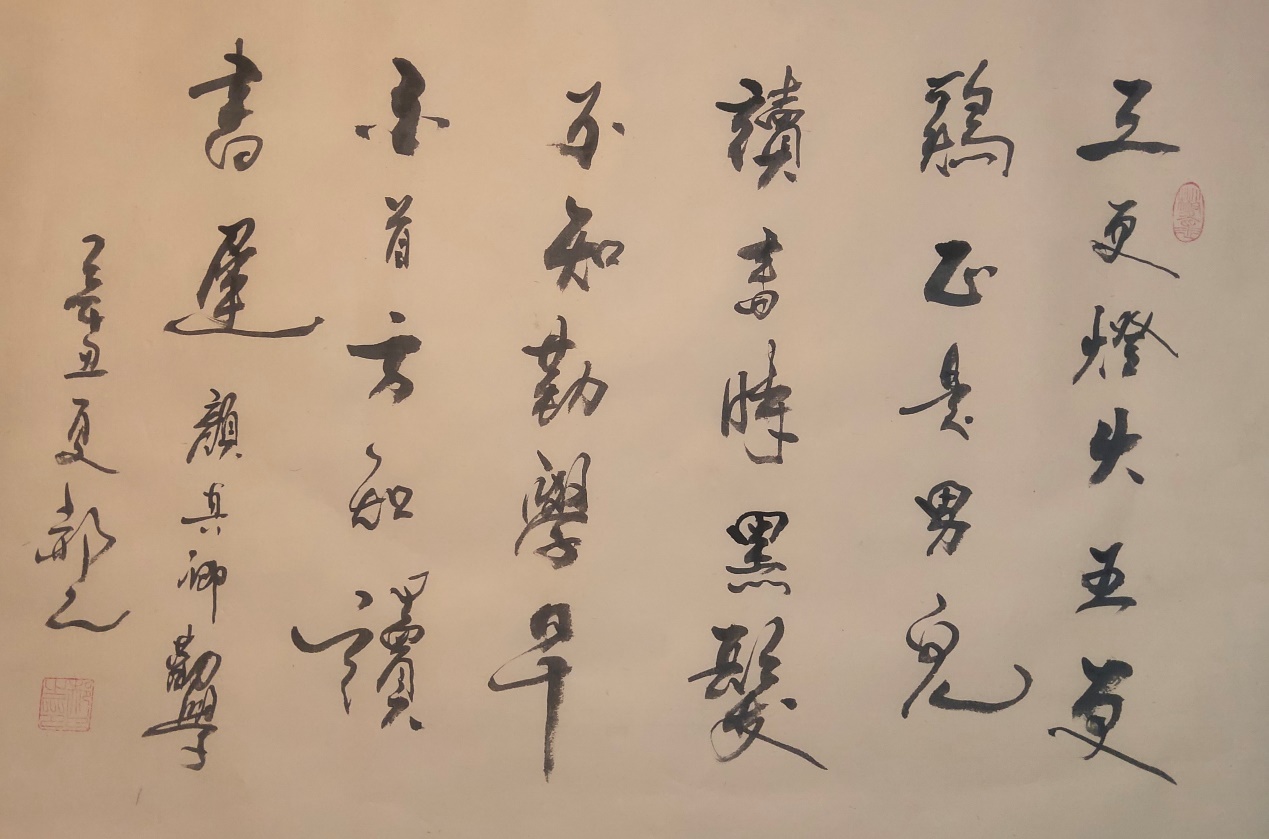 三更燈火五更
鷄正是男兒
讀書時黑髮
不知勤學早
白首方知讀
書遲 顏真卿勸學
辛丑夏郝